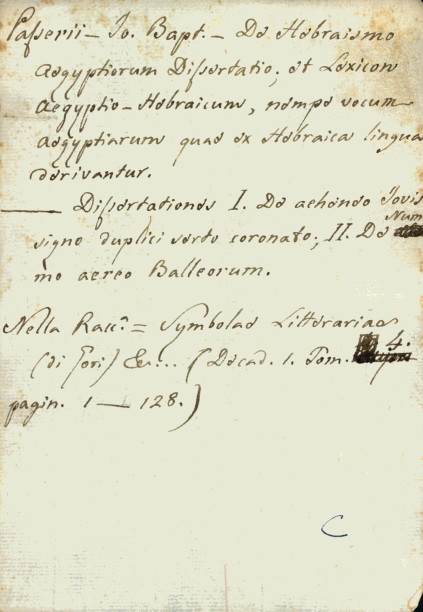 Passerii - Jo. Bapt. - De Hebraismo
Aegyptiorum Dissertatio; et Lexicon
Aegyptio-Hebraicum, nempe vocum
Aegyptiarum quae ex Hebraica lingua
derivantur.
— Dissertationes I. De aeheneo Jovis
signo duplici serto coronato; II. De Num
mo aereo Balleorum.
Nella Racc.ª = Symbolae Litterariae
(di Gori) &... (Decad. 1. Tom. 4.
pagin. 1 — 128.)
C